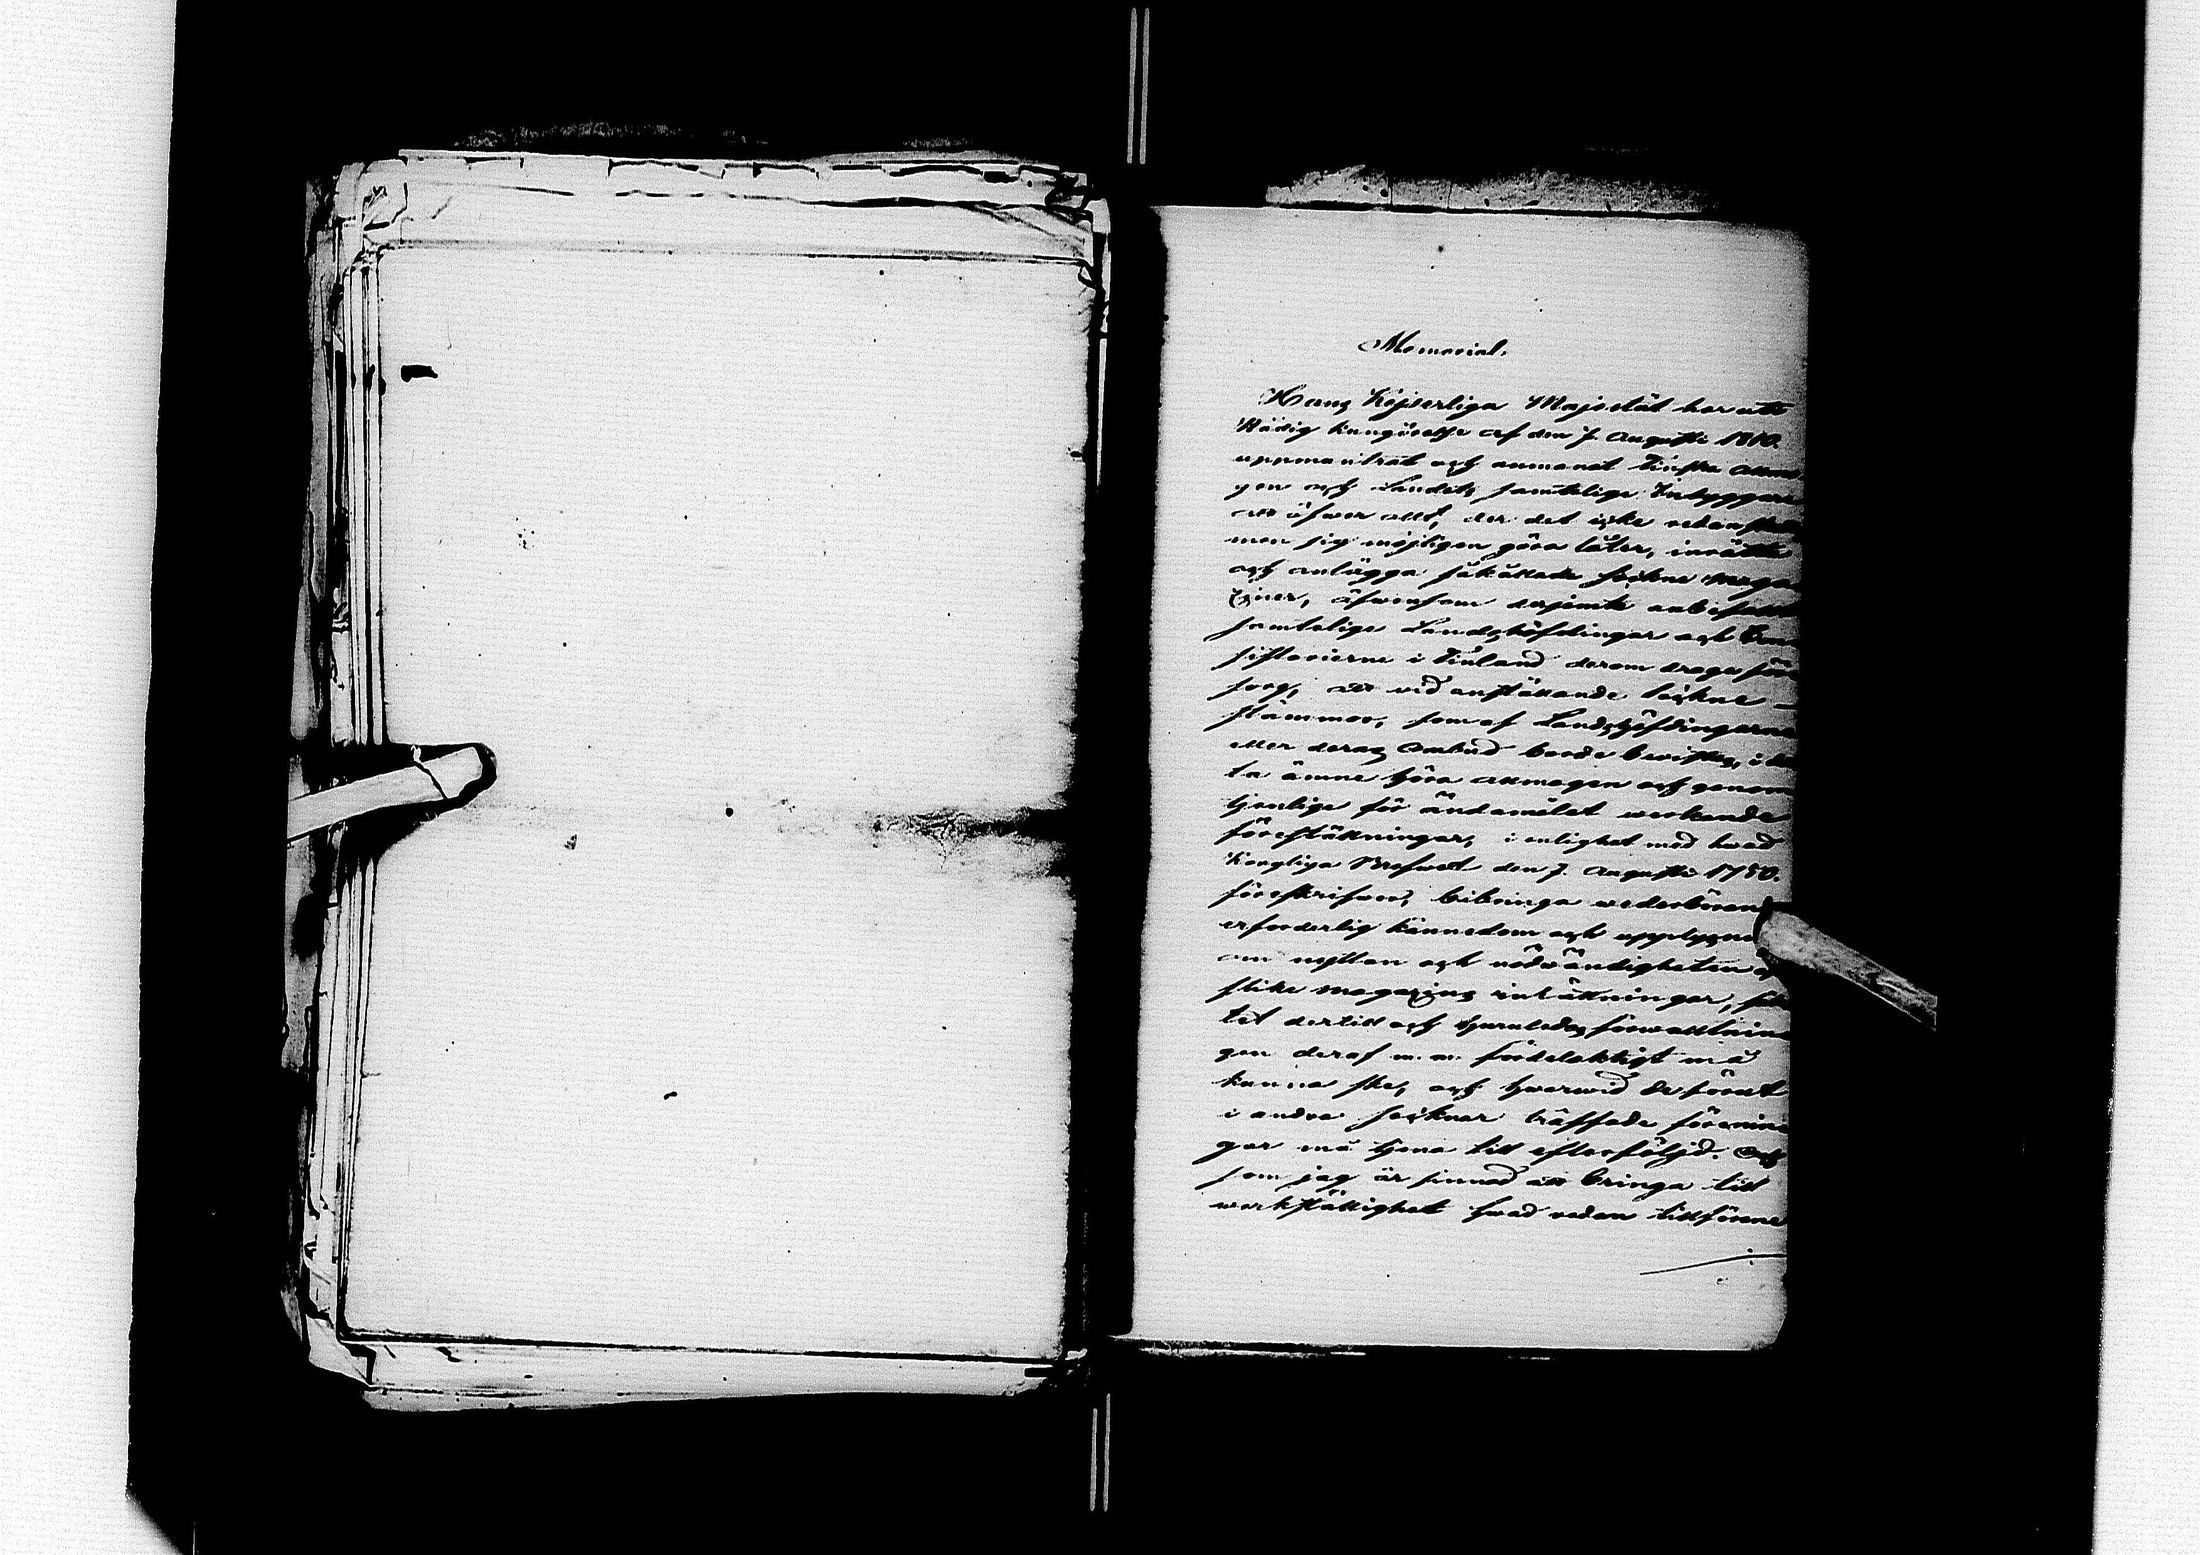 Memorial.
Hans Kejserliga Majestät har uti
Nådig kungörelse af den 7 Augusti 1810.
uppmuntrat och anmanat Finska allmo
gen och Landets samtelige Inbyggare
att öfwer allt, der det icke redan skett
men sig möjligen göra låter, inrätta
och anlägga så kallade sockne maga
ziner, äfwensom derjemte anbefallt
samtelige Landshöfdingar och Con
sistorierne i Finland derom draga för
sorg, att vid anställande sockne-
stämmor, som af Landshöfdingarne
eller deras Ombud borde bewistas, i det
ta ämne höra allmogen och genom
tjenliga för ändamålet werkande
föreställningar, i enlighet med hwad
Kongliga Brefwet den 7. Augusti 1750.
föreskrifwer, bibringa wederbörande
erforderlig kännedom och upplysning
om nyttan och nödwändigheten af
slike magazins inrättningar,
tet dertill och huruledes förwaltnin
gen deraf m. m. fördelaktigt må
kunna ske, och hwarwid de förut
i andra socknar träffade förenin
gar må tjena till efterföljd. Och
som jag är sinnad att bringa till
werkställighet hwad redan tillförene